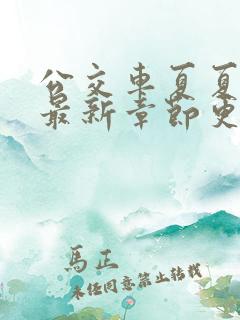 公交车夏夏
最新章节更
馬正
未经同意禁止转载